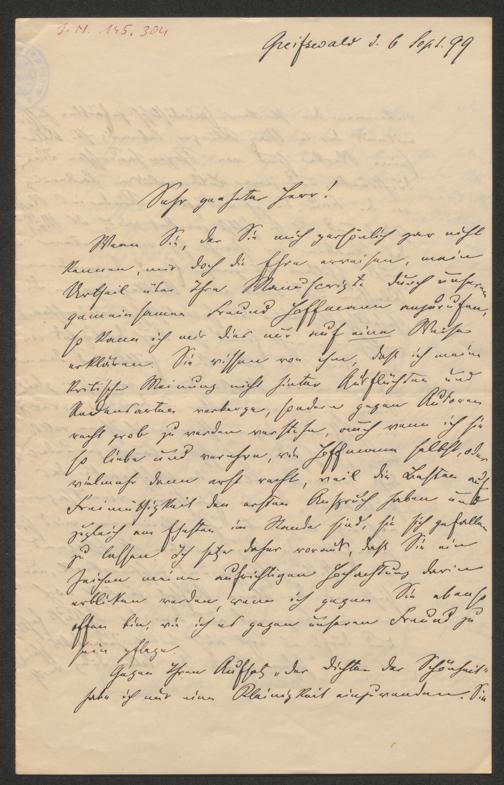 J. N. 145.304
Greifswald d. 6 Sept. 99
Sehr geehrter Herr!
Wenn Sie, der Sie mich persönlich gar nicht
kennen, mir doch die Ehre erweisen, mein
Urtheil über Ihre Manuscripte durch unseren
gemeinsamen Freund Hoffmann anzurufen,
so kann ich mir dies nur auf eine Weise
erklären. Sie wissen von ihm, daß ich meine
kritische Meinung nicht hinter Ausflüchten und
Redensarten verberge, sondern gegen Autoren
recht grob zu werden verstehe, auch wenn ich sie
so liebe und verehre, wie Hoffmann selbst, oder
vielmehr dann erst recht, weil die Besten auf
Freimüthigkeit den ersten Anspruch haben und
zugleich am ehesten im Stande sind, sie sich gefallen
zu lassen. Ich setze daher voraus, daß Sie ein
Zeichen meiner aufrichtigen Hochachtung darin
erblicken werden, wenn ich gegen Sie ebenso
offen bin, wie ich es gegen unseren Freund zu
sein pflege.
Gegen Ihren Aufsatz „der Dichter der Schönheit"
habe ich nur eine Kleinigkeit einzuwenden. Sie